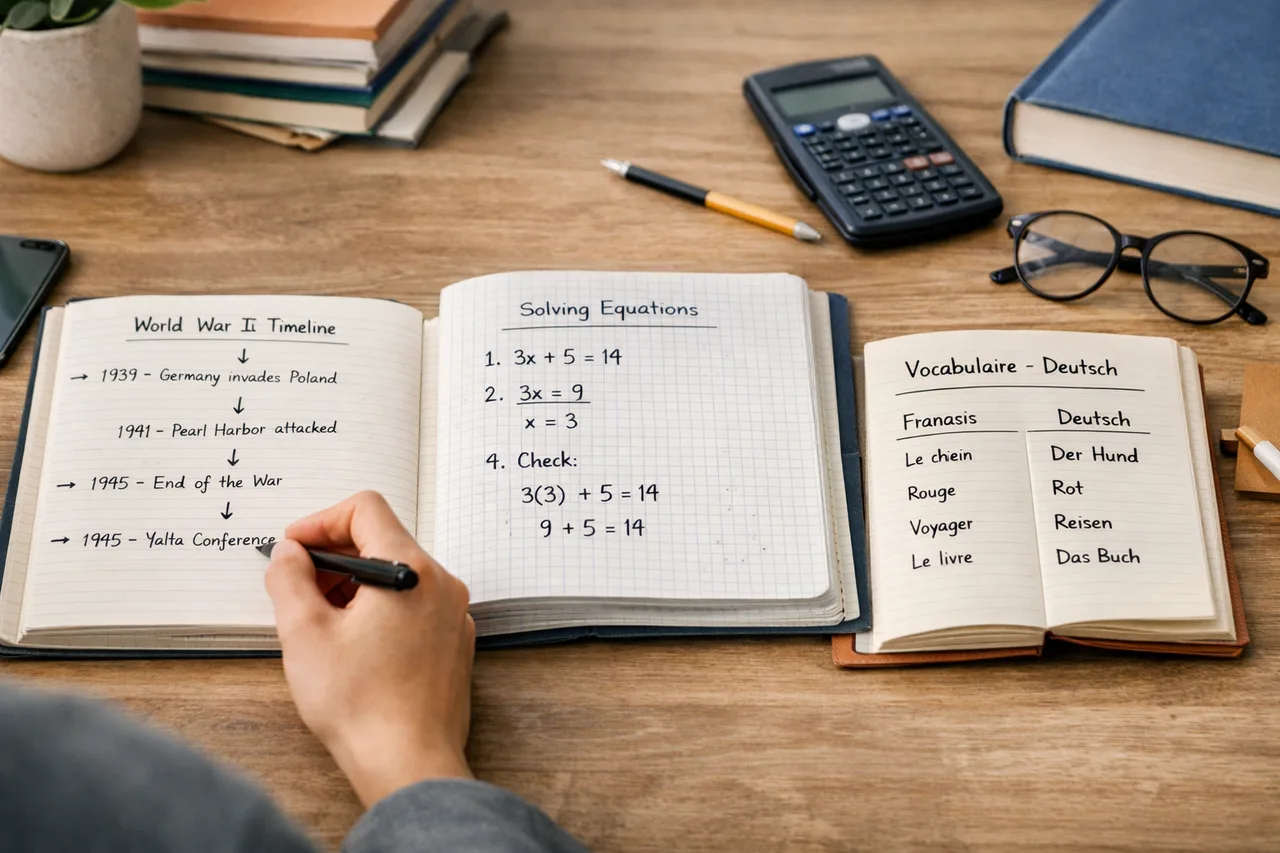 World War II Timeline
↓
→ 1939 - Germany invades Poland
↓
1941 - Pearl Harbor attacked
↓
→ 1945 - End of the War
↓
→ 1945 - Yalta Conference
Solving Equations
1. 3x + 5 = 14
2. 3x = 9
x = 3
4. Check:
3(3) + 5 = 14
9 + 5 = 14
Vocabulaire - Deutsch
Franasis Deutsch
Le chiein Der Hund
Rouge Rot
Voyager Reisen
Le livre Das Buch